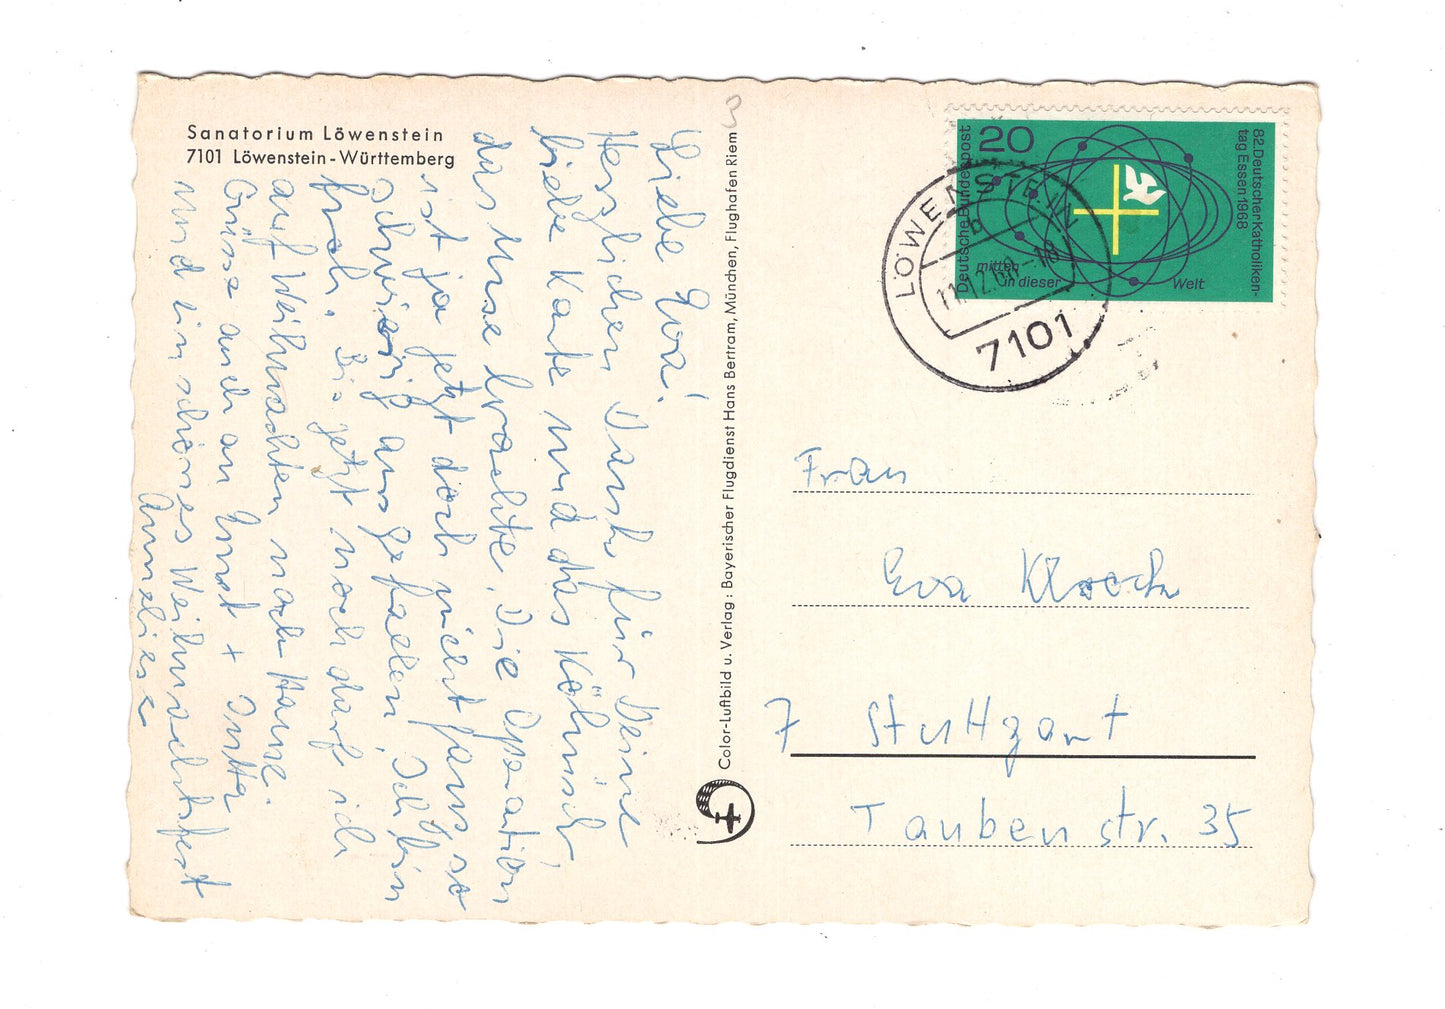 Sanatorium Löwenstein
7101 Löwenstein-Württemberg
Liebe Eva!
Herzlichen Dank für Deine
liebe Karte und das Kölnisch,
das Urse brachte. Die Operation
ist ja jetzt doch nicht ganz so
schwierig ausgefallen. Ich bin
froh. Bis jetzt noch darf ich
auf Weihnachten nach Hause.
Grüsse auch an Ernst + Jutta
und ein schönes Weihnachtsfest
Anneliese
Color-Luftbild u. Verlag: Bayerischer Flugdienst Hans Bertram, München, Flughafen Riem
3
20
Deutsche Bundespost
82. Deutscher Katholiken-
tag Essen 1968
mitten
in dieser Welt
LÖWENSTEIN
11.12.68-18
7101
Frau
Eva
7 Stuttgart
Taubenstr. 35